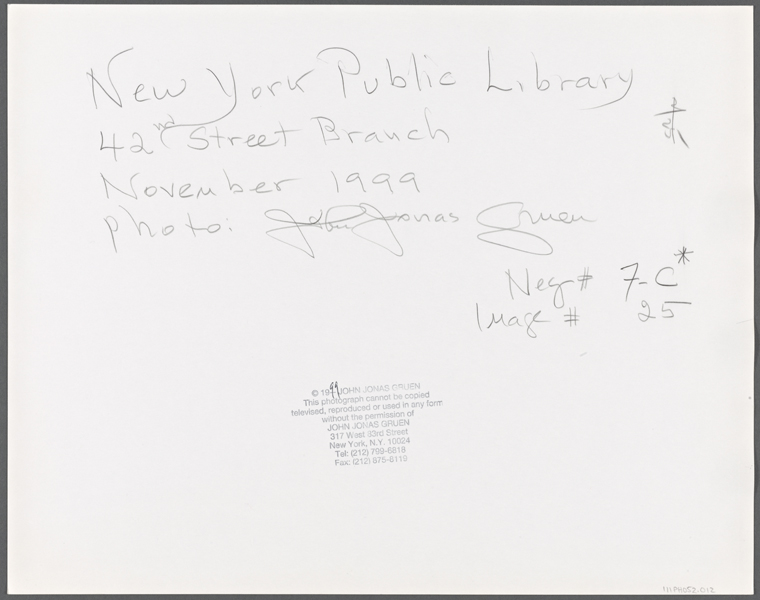 New York Public Library
42nd Street Branch
November 1999
photo: John Jonas Gruen
Neg # 7-C*
Image # 25
© 1999 JOHN JONAS GRUEN
This photograph cannot be copied
televised, reproduced or used in any form
without the permission of
JOHN JONAS GRUEN
317 West 83rd Street
New York, N.Y. 10024
Tel: (212) 799-6818
Fax: (212) 875-8119